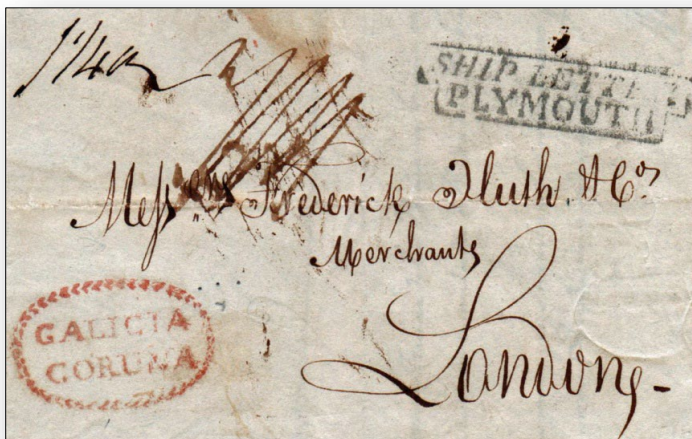 SHIP LETTER
PLYMOUTH
Messrs Frederick Huth & Co.
Merchants
London
GALICIA
CORUÑA